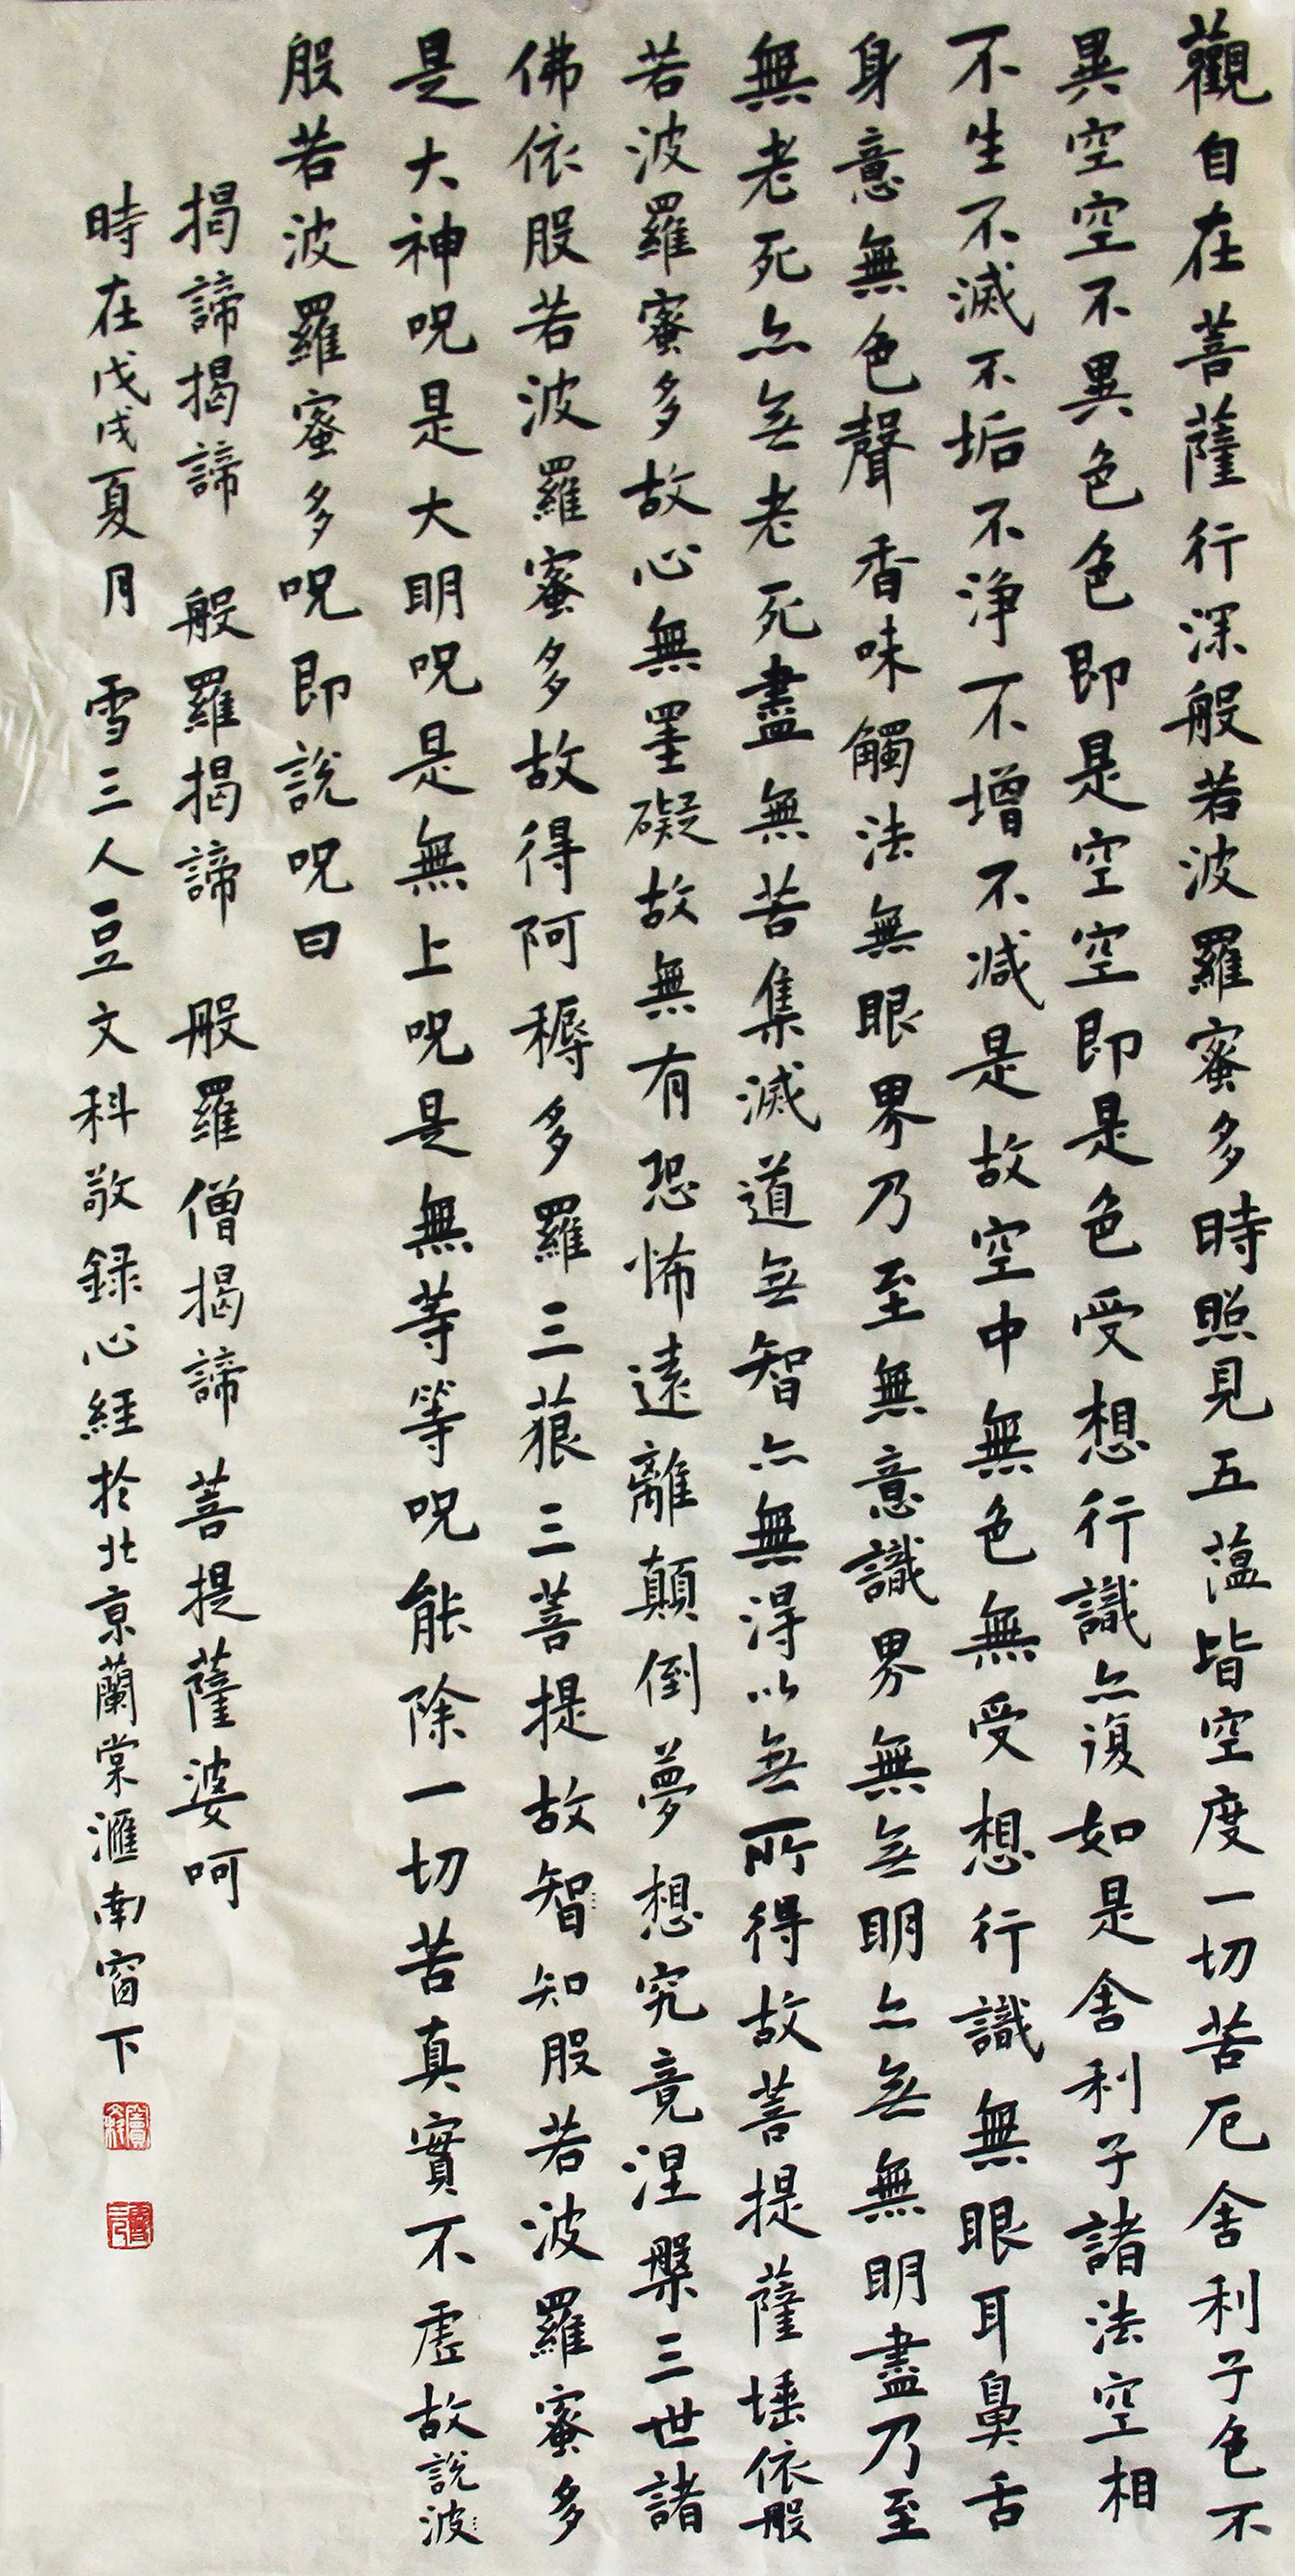 觀自在菩薩行深般若波羅蜜多時照見五蕰皆空度一切苦厄舍利子色不
異空空不異色色即是空空即是色受想行識亦復如是舍利子諸法空相
不生不滅不垢不淨不增不減是故空中無色無受想行識無眼耳鼻舌
身意無色聲香味觸法無眼界乃至無意識界無無明亦無無明盡乃至
無老死亦無老死盡無苦集滅道無智亦無得以無所得故菩提薩埵依般
若波羅蜜多故心無罣礙故無有恐怖遠離顛倒夢想究竟涅槃三世諸
佛依般若波羅蜜多故得阿耨多羅三藐三菩提故智知般若波羅蜜多
是大神呪是大明呪是無上呪是無等等呪能除一切苦真實不虛故說波
般若波羅蜜多呪即說呪曰
揭諦揭諦 般羅揭諦 般羅僧揭諦 菩提薩婆呵
時在戊戌夏月 雪三人豆文科敬録心經於北京蘭棠滙南窗下